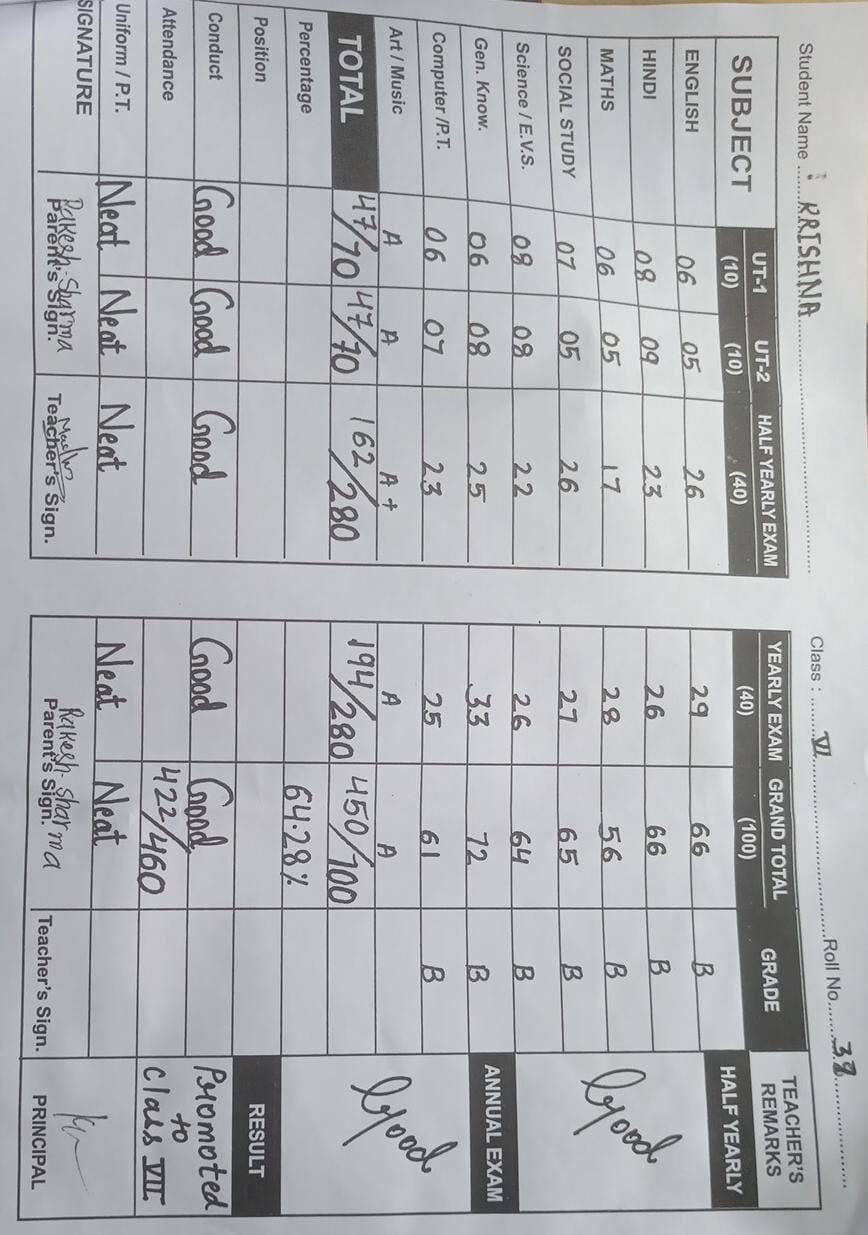 Student Name : KRISHNA Class : VI Roll No. 38
SUBJECT UT-1 (10) UT-2 (10) HALF YEARLY EXAM (40) YEARLY EXAM (40) GRAND TOTAL (100) GRADE TEACHER'S REMARKS
ENGLISH 06 05 26 29 66 B HALF YEARLY
HINDI 08 09 23 26 66 B
MATHS 06 05 17 28 56 B Good
SOCIAL STUDY 07 05 26 27 65 B
Science / E.V.S. 08 08 22 26 64 B
Gen. Know. 06 08 25 33 72 B ANNUAL EXAM
Computer /P.T. 06 07 23 25 61 B
Art / Music A A A+ A A Good
TOTAL 47/70 47/70 162/280 194/280 450/100
Percentage 64.28%
Position RESULT
Conduct Good Good Good Good Good Promoted
to
Attendance 422/460 Class VII.
Uniform / P.T. Neat Neat Neat Neat Neat
SIGNATURE Rakesh Sharma Rakesh Sharma
Parent's Sign. Teacher's Sign. Parent's Sign. Teacher's Sign. PRINCIPAL